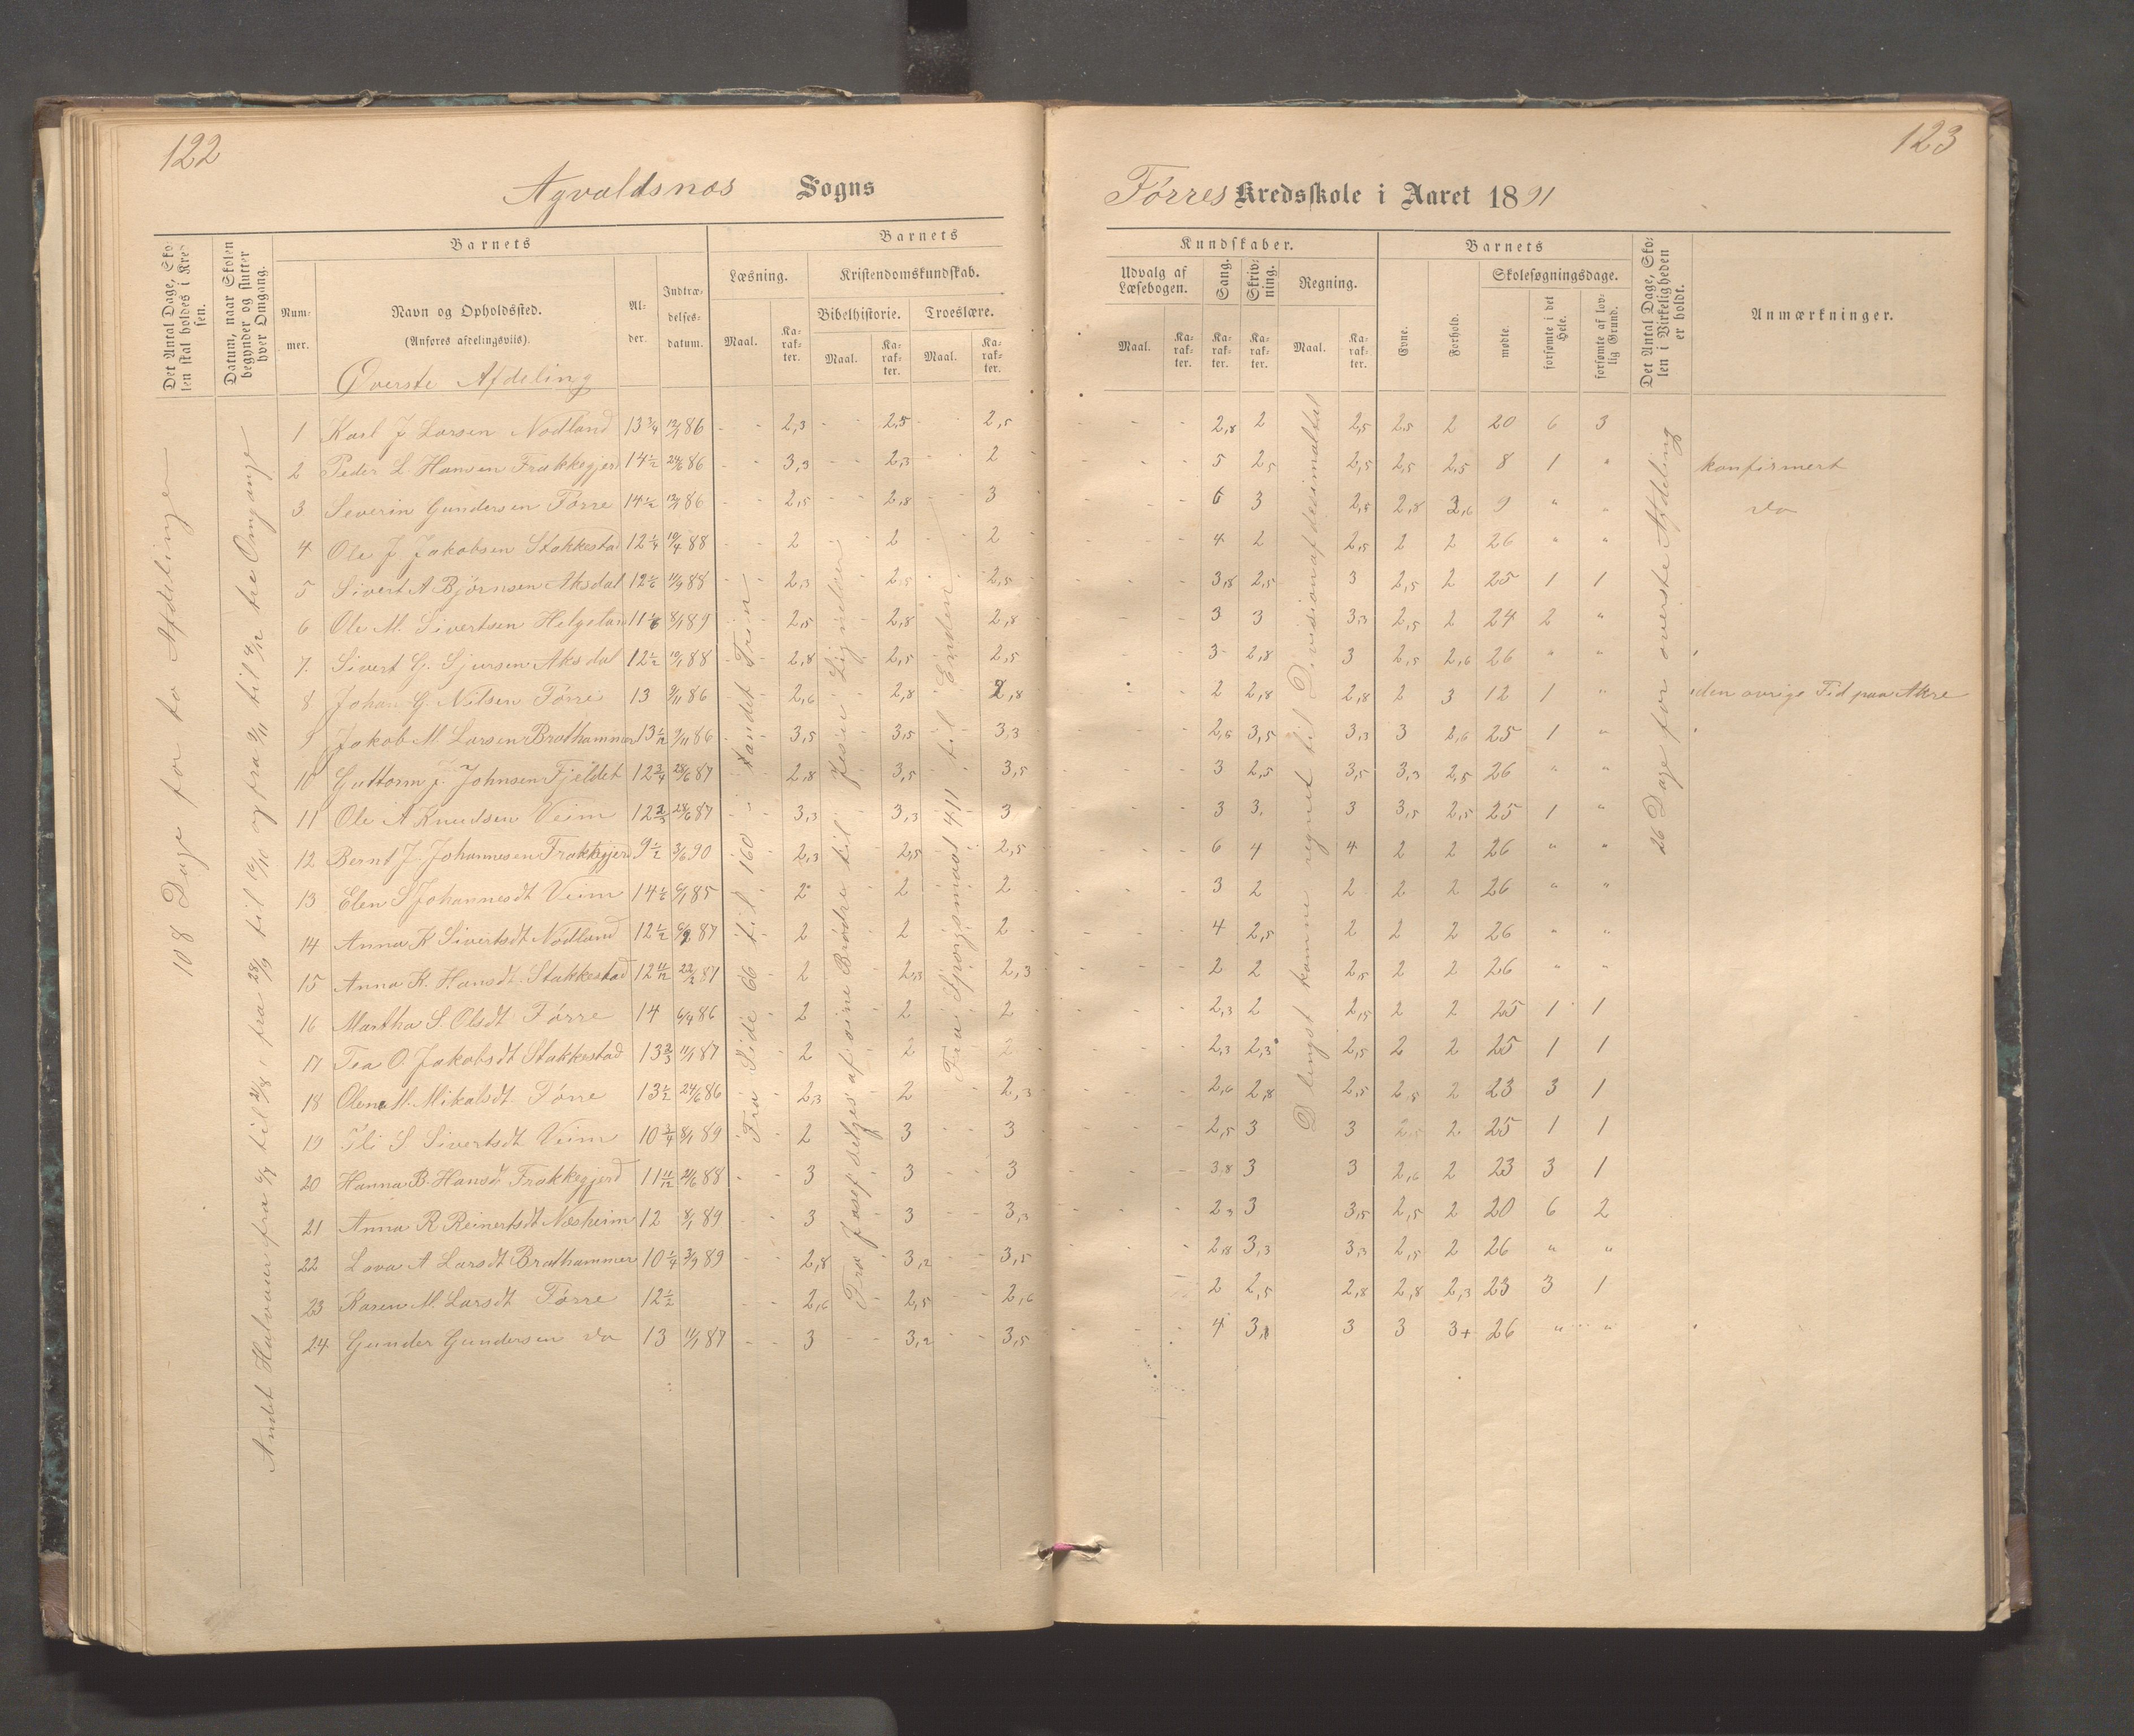 122
123
Agvaldsnæs Sogns
Førres Kredsskole i Aaret 1891
Det Antal Dage, Skolen skal holdes i Kredsen.
Datum, naar Skolen begynder og slutter hver Omgang.
Barnets
Nummer.
Navn og Opholdssted.
(Anføres afdelingsviis).
Øverste Afdeling
Alder.
Indtrædelsesdatum.
Barnets
Læsning.
Maal.
Karakter.
Kristendomskundskab.
Bibelhistorie.
Maal.
Karakter.
Troeslære.
Maal.
Karakter.
Kundskaber.
Udvalg af Læsebogen.
Maal.
Karakter.
Sang.
Karakter.
Skrivning.
Karakter.
Regning.
Maal.
Karakter.
Barnets
Evne.
Forhold.
Skolesøgningsdage.
mødte.
forsømte i det Hele.
forsømte af lovlig Grund.
Det Antal Dage, Skolen i Virkeligheden er holdt.
Anmærkninger.
108 Dage for to Afdelinger
til Omgange
Fra Side 66 til 160 i andet Trin
Fra Josef sælges af sine Brødre til Jesu Lignelser
Fra Spørgsmaal 411 til Enden
D længst komne regnet til Division af decimaltal
26 Dage for øverste Afdeling
1 Karl J Larsen Nodland 13 3/4 12/1 86 2,3 2,5 2,5 2,8 2 2,5 2,5 2 20 6 3
2 Peder L. Hansen Frakkegjerd 14 1/2 24/6 86 3,3 2,3 2 5 2,5 2,5 2,5 2,5 8 1 " konfirmert
3 Severin Gundersen Førre 14 1/2 12/1 86 2,5 2,8 3 6 3 2,5 2,8 3,6 9 " " do
4 Ole J. Jakobsen Stakkestad 12 1/4 19/4 88 2 2 2 4 2 2,5 2 2 26 " "
5 Sivert A Bjørnsen Aksdal 12 1/6 11/9 88 2,3 2,5 2,5 3,8 2,5 3 2,5 2 25 1 1
6 Ole M. Sivertsen Helgeland 11 1/6 8/1 89 2,5 2,8 2,8 3 3 3,3 2,5 2 24 2 "
7. Sivert G. Sjursen Aksdal 12 1/2 10/1 88 2,8 2,5 2,5 3 2,8 3 2,5 2,6 26 " "
8 Johan G. Nilsen Førre 13 9/11 86 2,6 2,8 2,8 2 2,8 2,8 2 3 12 1 " den øvrige Tid paa Akre
9 Jakob M Larsen Brathammer 13 1/12 9/11 86 3,5 3,5 3,3 2,6 3,5 3,3 3 2,6 25 1 "
10 Guttorm J. Johnsen Fjeldet 12 3/4 28/6 87 2,8 3,5 3,5 3 2,5 3,5 3,3 2,5 26 " "
11 Ole A Knudsen Veim 12 2/3 28/6 87 3,3 3,3 3 3 3. 3 3,5 2,5 25 1 "
12 Bernt J. Johannesen Frakkegjerd 9 1/2 3/6 90 2,3 2,5 2,5 6 4 4 2 2 26 " "
13 Elen S Johannesdt Veim 14 1/6 6/1 85 2 2 2 3 2 2 2 2 26 " "
14 Anna K Sivertsdt Nodland 12 1/2 87 2 2 2 4 2,5 2 2 2 26 " "
15 Anna K. Hansdt Stakkestad 12 11/12 22/2 87 2 2,3 2,3 2 2 2,5 2 2 26 " "
16 Martha S Olsdt Førre 14 6/9 86 2 2 2 2,3 2 2,5 2 2 25 1 1
17 Tea O. Jakobsdt Stakkestad 13 2/3 11/1 87 2 2 2 2,3 2,3 2,5 2 2 25 1 1
18 Olene M. Mikalsdt Førre 13 1/2 24/6 86 2,3 2 2,3 2,6 2,8 2,5 2,5 2 23 3 1
19 S Sivertsdt Veim 10 3/4 8/1 89 2 3 3 2,5 3 3 2,5 2 25 1 1
20 Hanna B. Hansdt Frakkegjerd 11 11/12 21/6 88 3 3 3 3,8 3 3 2,6 2 23 3 1
21 Anna R Reinertsdt Nesheim 12 8/1 89 3 3 3,3 2,3 3 3,5 2,5 2 20 6 2
22 Lova A Larsdt Brathammer 10 1/4 3/9 89 2,8 3,2 3,5 2,8 3,3 3,3 2,5 2 26 " "
23 Karen M. Larsdt Førre 12 1/2 2,6 2,5 2,6 2 2,5 2,8 2,8 2,3 23 3 1
24 Gunder Gundersen do 13 11/1 87 3 3,2 3,5 4 3,1 3 3 3+ 26 " "